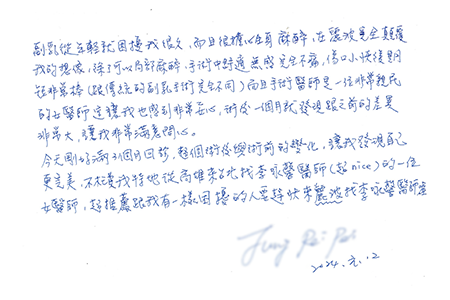 副乳從年輕就困擾我很久，而且很擔心全身麻醉，在麗波完全顛覆
我的想像，除了可以局部麻醉，手術中舒適無感完全不痛，傷口小恢復期
短非常棒（跟傳統的副乳手術完全不同）而且手術醫師是一位非常親民
的女醫師這讓我也感到非常安心，術後一個月就發現跟之前的差異
非常大，讓我非常滿意開心。
今天剛好滿3個月回診，整個術後與術前的變化，讓我發現自己
更完美，不枉費我特地從高雄來台北找李永馨醫師（超nice）的一位
女醫師，超推薦跟我有一樣困擾的人要趕快來麗波找李永馨醫師
2024.元.12